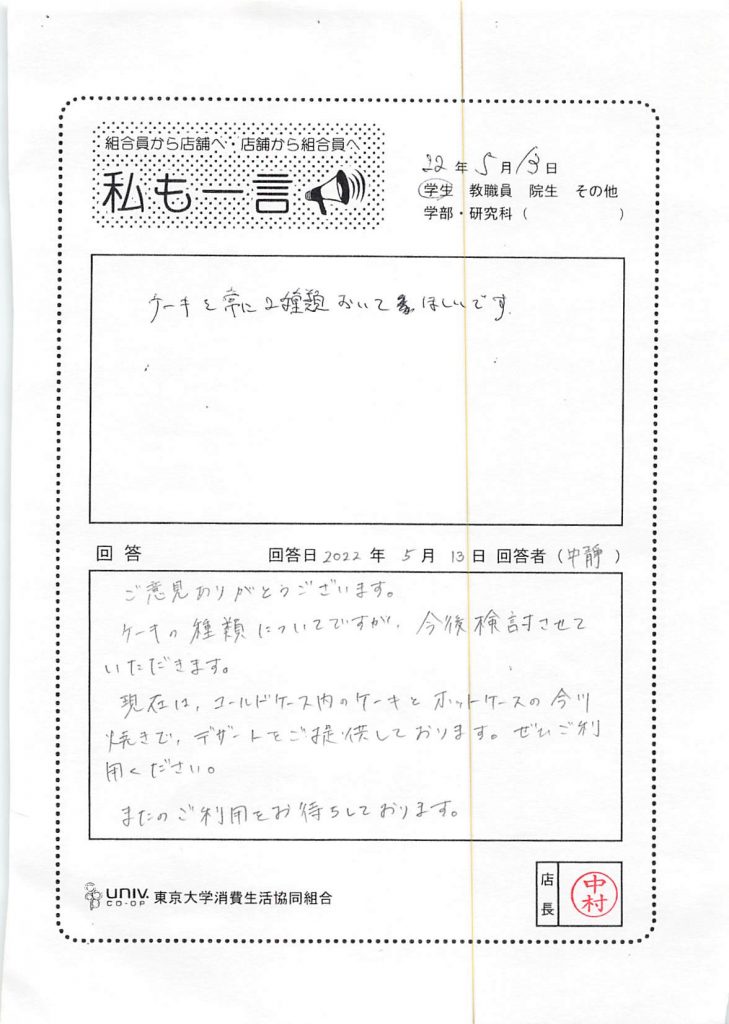 組合員から店舗へ・店舗から組合員へ
私も一言
22年5月13日
学生 教職員 院生 その他
学部・研究科( )
ケーキを常に2種類おいてほしいです.
回答 回答日2022年5月13日 回答者(中静)
ご意見ありがとうございます。
ケーキの種類についてですが、今後検討させて
いただきます。
現在は、コールドケース内のケーキとホットケースの今川
焼きで、デザートをご提供しております。ぜひご利
用ください。
またのご利用をお待ちしております。
UNIV. CO-OP 東京大学消費生活協同組合
店長 中村